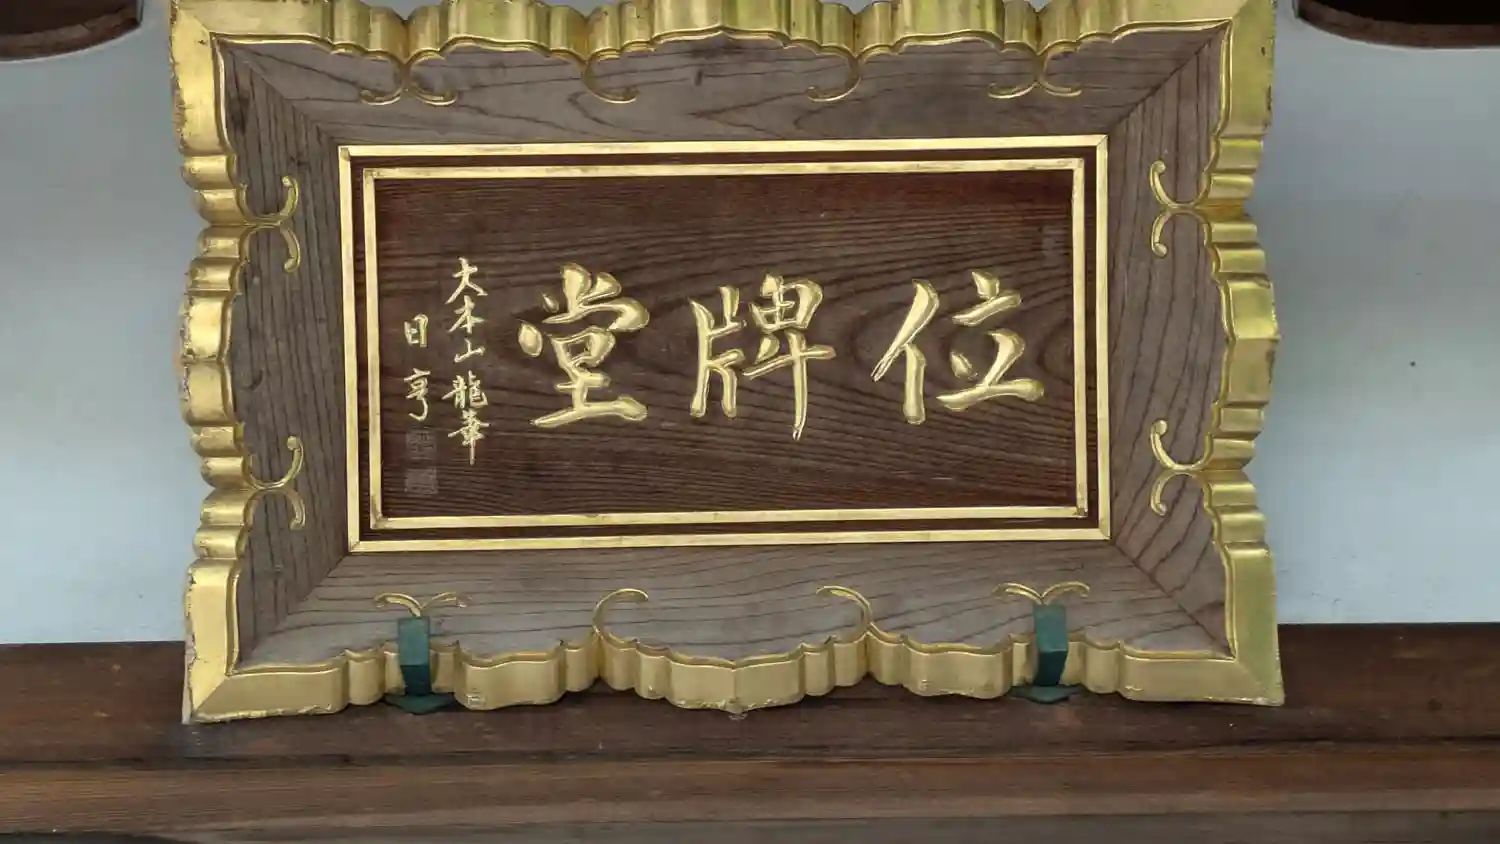 位牌堂
大本山龍華
日亨